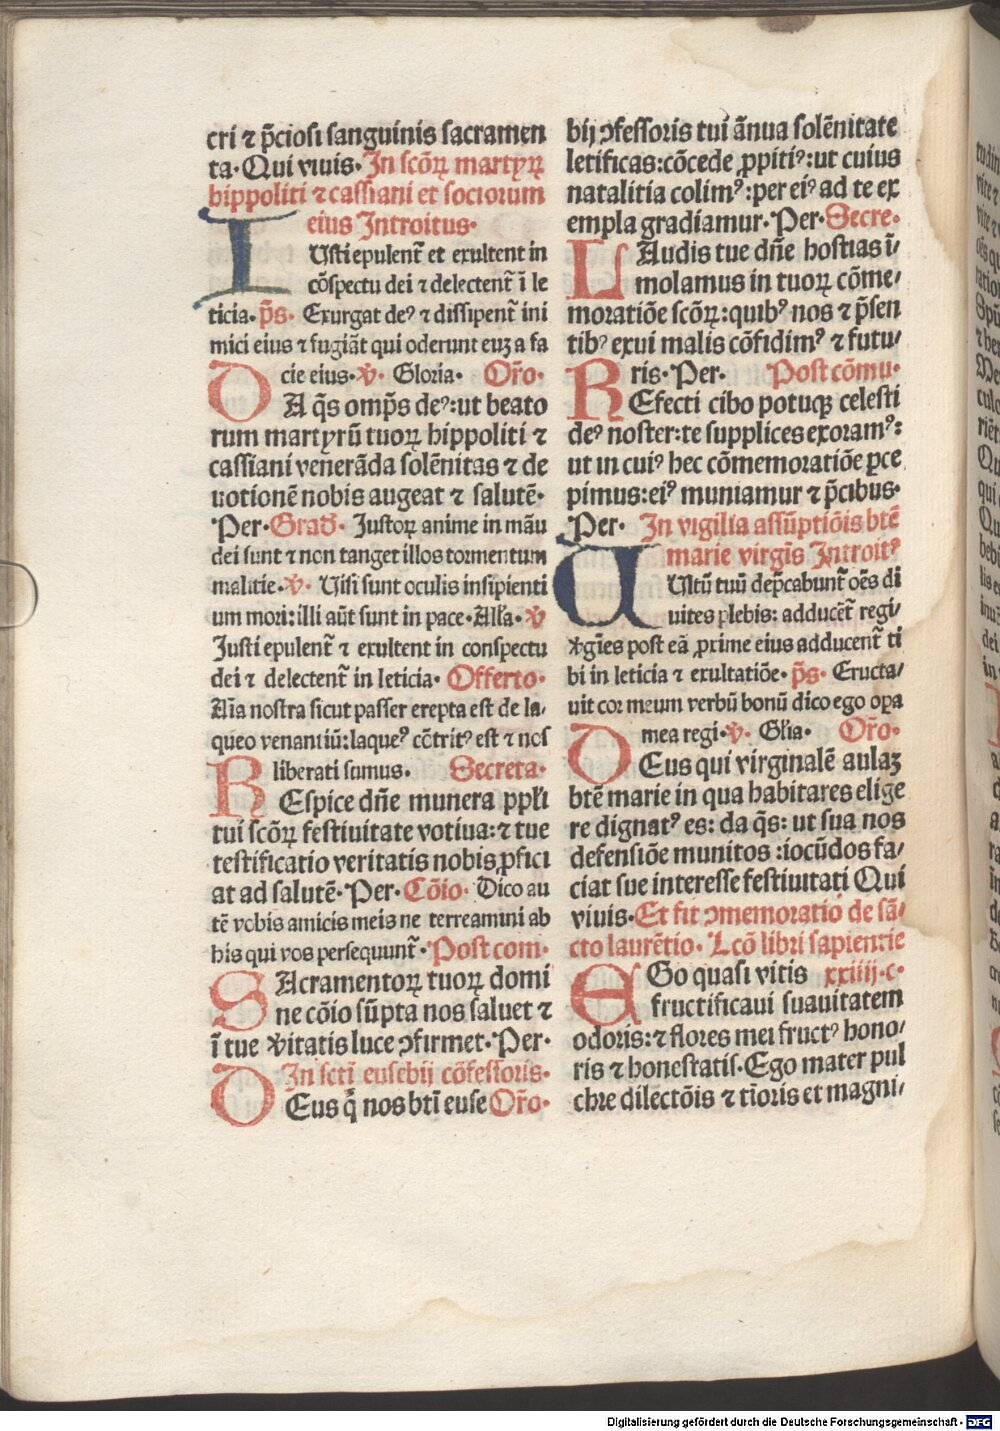 cri ⁊ p̄ciosi sanguinis sacramen
ta· Qui viuis· In scōꝝ martyꝝ
hippoliti ⁊ cassiani et sociorum
eius Introitus·
IUsti epulent̄ et exultent in
cōspectu dei ⁊ delectent̄ ī le
ticia· p̄s· Exurgat deꝰ ⁊ dissipent̄ ini
mici eius ⁊ fugiāt qui oderunt euꝫ a fa
cie eius· ℣· Gloria· Or̄o·
DA q̄s omp̄s deꝰ: ut beato
rum martyrū tuoꝝ hippoliti ⁊
cassiani venerāda solēnitas ⁊ de
uotionē nobis augeat ⁊ salutē·
Per· Grad̄· Justoꝝ anime in māu
dei sunt ⁊ non tanget illos tormentum
malitie· ℣· Uisi sunt oculis insipienti
um mori: illi aūt sunt in pace· Alľa· ℣
Justi epulent̄ ⁊ exultent in conspectu
dei ⁊ delectent̄ in leticia· Offerto·
Aīa nostra sicut passer erepta est de la/
queo venantiū: laqueꝰ cōtritꝰ est ⁊ nos
liberati sumus· Secreta·
REspice dn̄e munera ppľi
tui scōꝝ festiuitate votiua: ⁊ tue
testificatio veritatis nobis ꝓfici
at ad salutē· Per· Cōio· Dico au
tē vobis amicis meis ne terreamini ab
his qui vos persequunt̄· Post com·
SAcramentoꝝ tuoꝝ domi
ne cōio sūpta nos saluet ⁊
ī tue v̄itatis luce ꝯfirmet· Per·
In scti eusebij cōfessoris·
DEus q̄ nos btī euse Or̄o·
bij ꝯfessoris tui ānua solēnitate
letificas: cōcede ꝓpitiꝰ: ut cuius
natalitia colimꝰ: per eiꝰ ad te ex
empla gradiamur· Per· Secre·
LAudis tue dn̄e hostias ī/
molamus in tuoꝝ cōme/
moratiōe scōꝝ: quibꝰ nos ⁊ p̄sen
tibꝰ exui malis cōfidimꝰ ⁊ futu/
ris· Per· Post cōmu·
REfecti cibo potuqꝫ celesti
deꝰ noster: te supplices exoramꝰ:
ut in cuiꝰ hec cōmemoratiōe ꝑce
pimus: eiꝰ muniamur ⁊ p̄cibus·
Per· In vigilia assūptiōis btē
marie virgīs Introitꝰ
UUltū tuū dep̄cabunt̄ oēs di
uites plebis: adducēt̄ regi/
v̄gīes post eā ꝓxime eius adducent̄ ti
bi in leticia ⁊ exultatiōe· p̄s· Eructa/
uit cor meum verbū bonū dico ego oꝑa
mea regi· ℣· Gľia· Or̄o·
DEus qui virginalē aulaꝫ
btē marie in qua habitares elige
re dignatꝰ es: da q̄s: ut sua nos
defensiōe munitos: iocūdos fa/
ciat sue interesse festiuitati Qui
viuis· Et fit ꝯmemoratio de sā/
cto laurētio· Lcō libri sapientie
EGo quasi vitis xxiiij·c·
fructificaui suauitatem
odoris: ⁊ flores mei fructꝰ hono/
ris ⁊ honestatis· Ego mater pul
chre dilectōis ⁊ tīoris et magni/
Digitalisierung gefördert durch die Deutsche Forschungsgemeinschaft - DFG